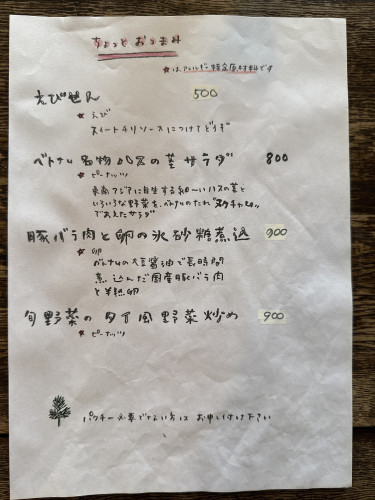 ちょっと おつまみ
★は、アレルギー特定原材料です
えびせん 500
★ えび
スイートチリソースにつけてどうぞ
ベトナム名物ハスの茎サラダ 800
★ ピーナッツ
東南アジアに自生する細〜いハスの茎と
いろいろな野菜を、ベトナムのたれ"ヌクチャム"
であえたサラダ
豚バラ肉と卵の氷砂糖煮込 900
★ 卵
ベトナムの大豆醤油で長時間
煮込んだ国産豚バラ肉
と半熟卵
旬野菜のタイ風野菜炒め 900
★ ピーナッツ
パクチー必要でない方は お申し付け下さい